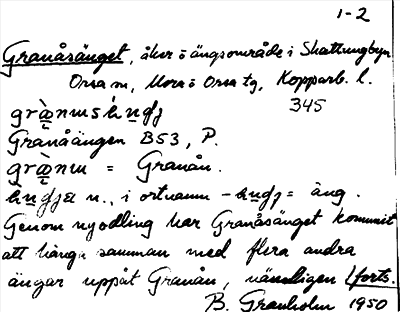 1-2
Granåsänget, åker o ängsområde i Skattungbyn
Orsa sn, Mora o Orsa tg, Kopparb. l.
345
Granåängen B53, P.
= Granån.
n., i ortnamn = äng.
Genom nyodling har Granåsänget kommit
att hänga samman med flera andra
ängar uppåt Granån, nämligen (forts.
B. Granholm 1950